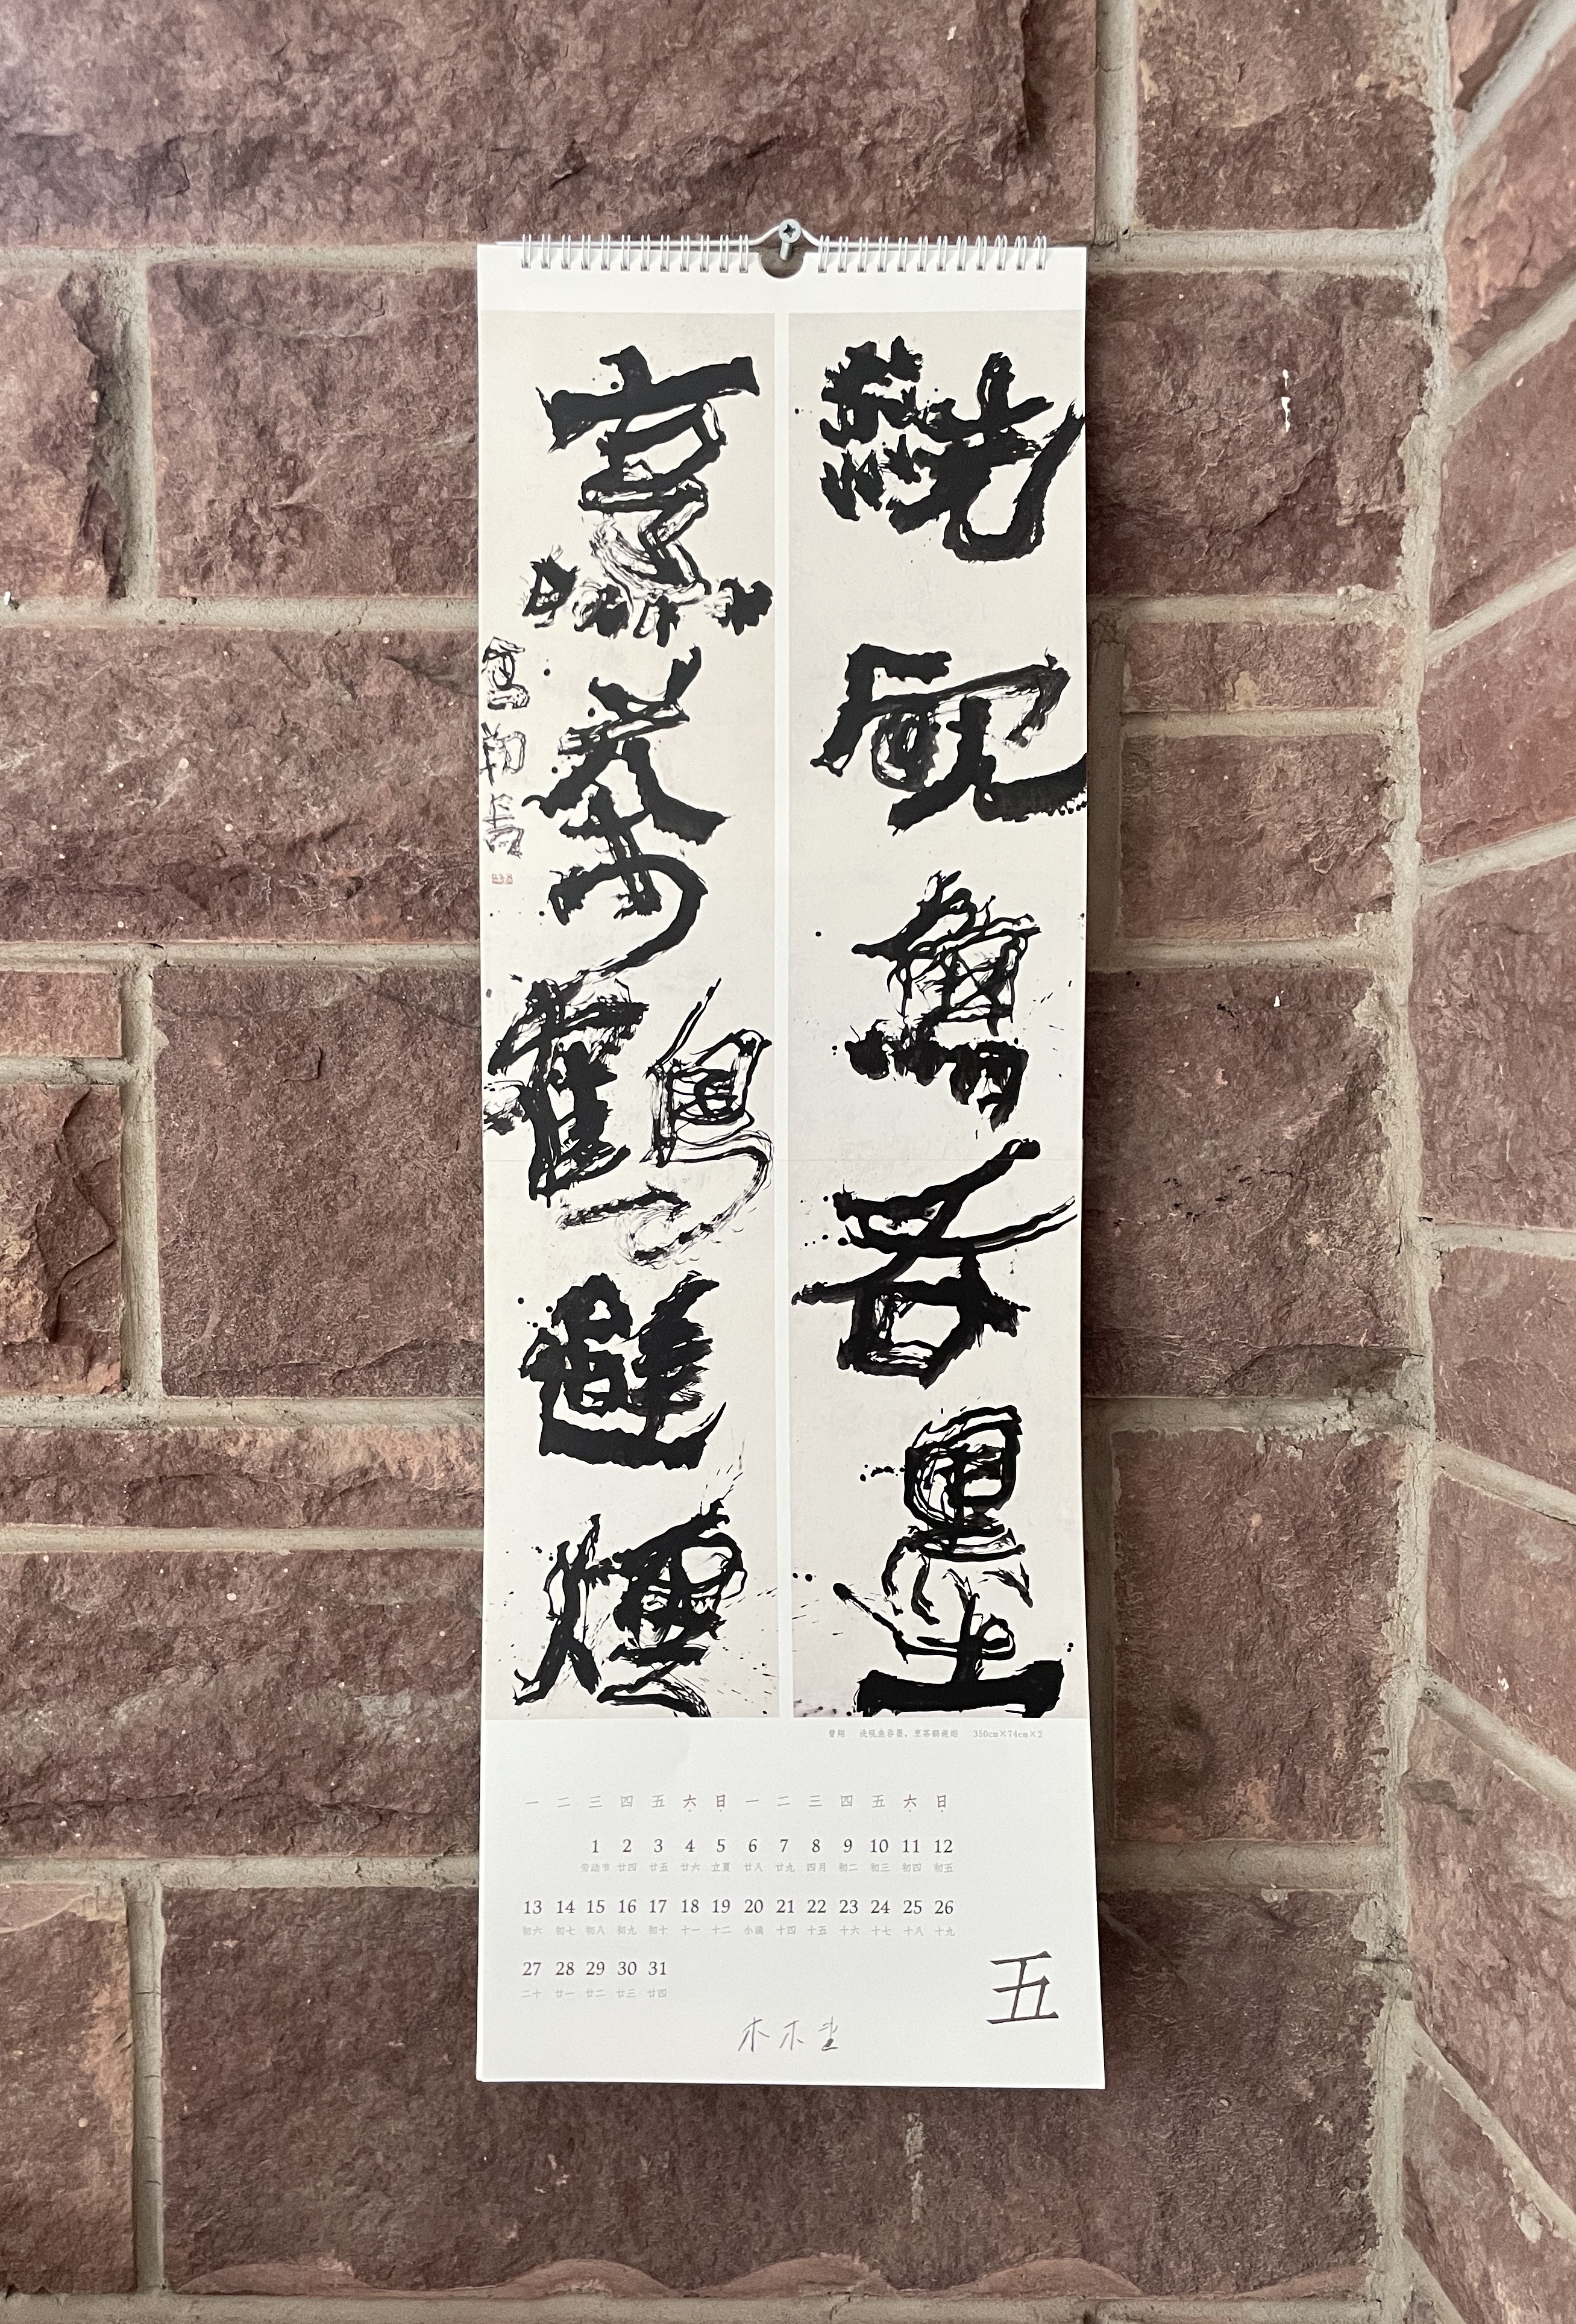 洗砚鱼吞墨
烹茶鹤避烟
曾翔书
曾翔 洗砚鱼吞墨、烹茶鹤避烟 350cm×74cm×2
一 二 三 四 五 六 日 一 二 三 四 五 六 日
1 2 3 4 5 6 7 8 9 10 11 12
劳动节 廿四 廿五 廿六 立夏 廿八 廿九 四月 初二 初三 初四 初五
13 14 15 16 17 18 19 20 21 22 23 24 25 26
初六 初七 初八 初九 初十 十一 十二 小满 十四 十五 十六 十七 十八 十九
27 28 29 30 31
二十 廿一 廿二 廿三 廿四
五
木木堂